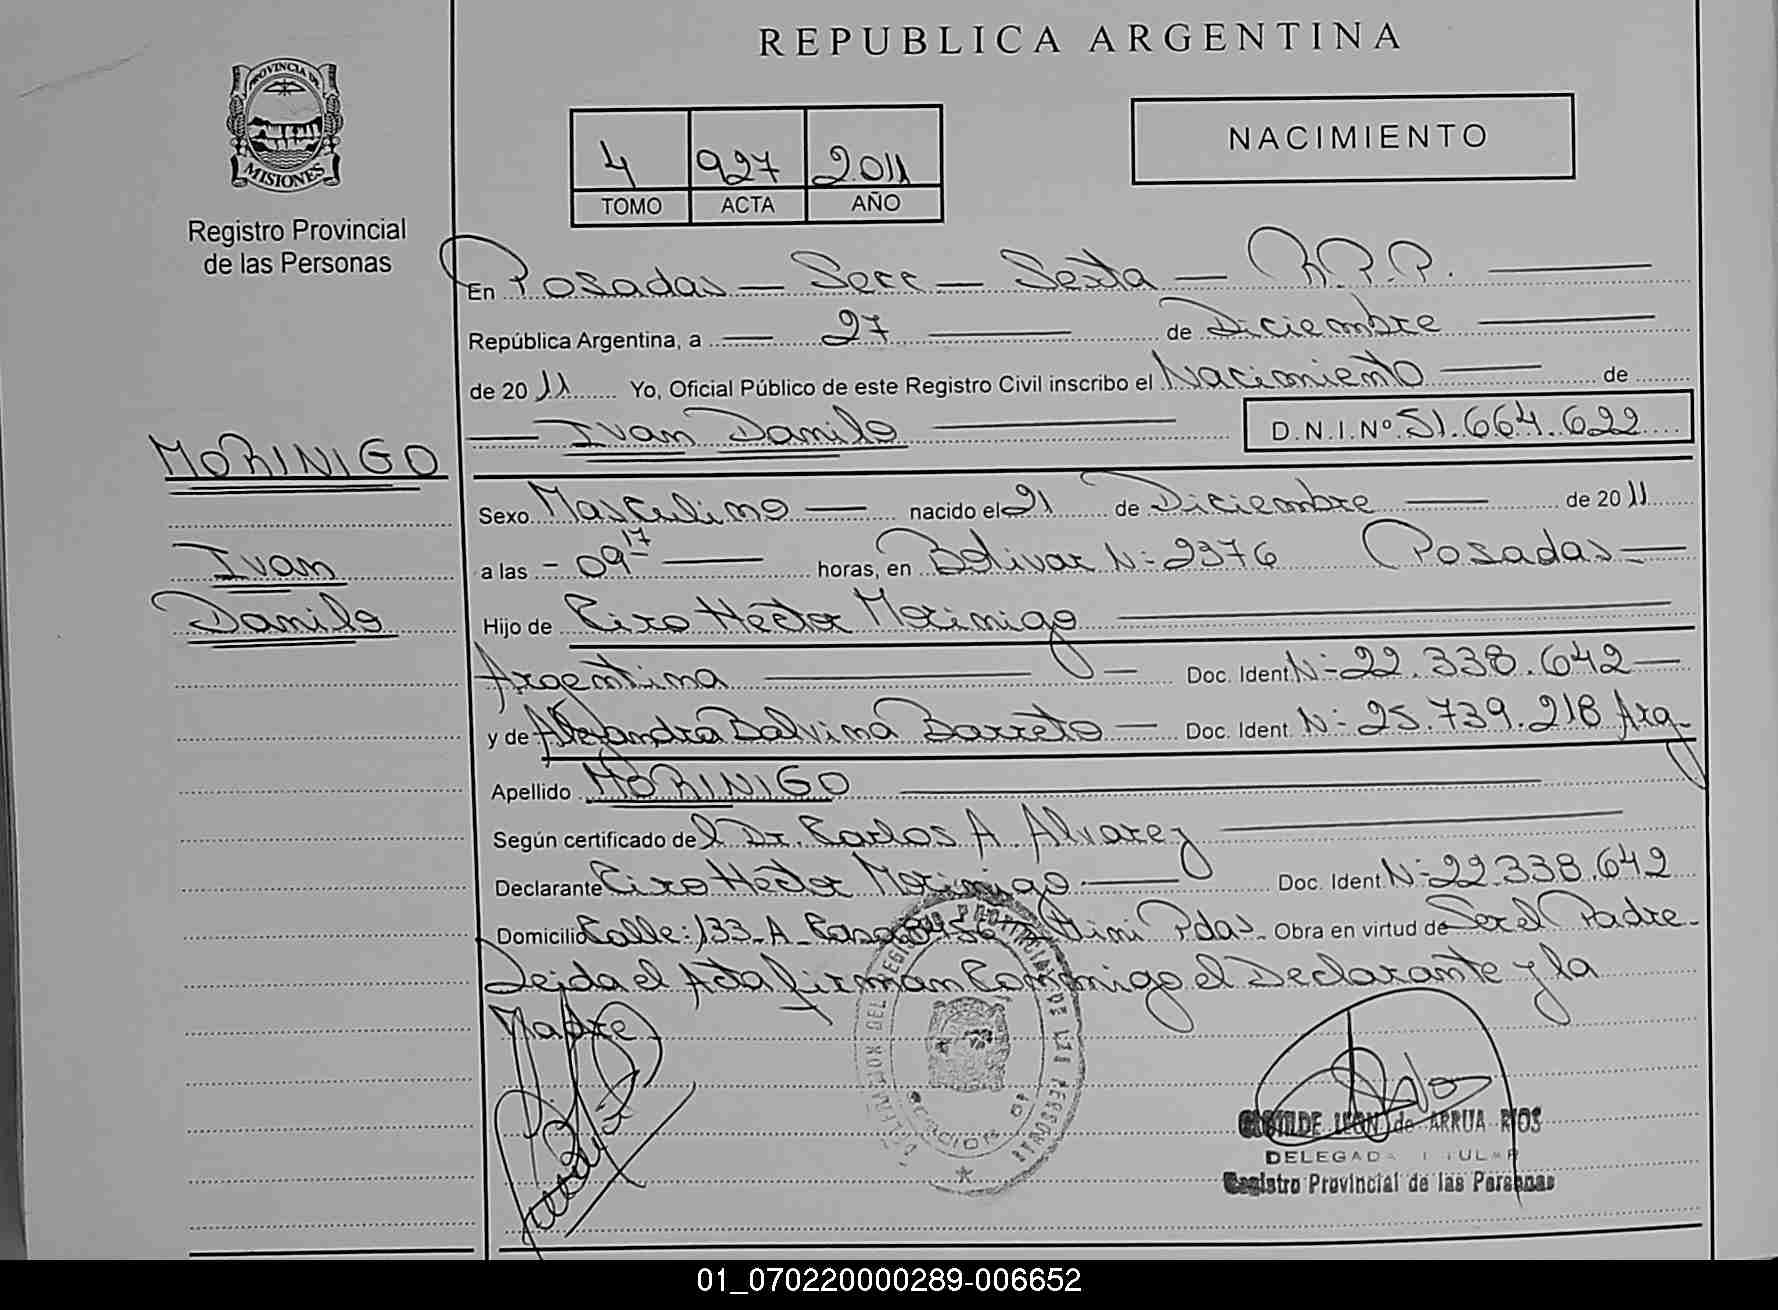 REPUBLICA ARGENTINA
PROVINCIA DE
MISIONES
Registro Provincial
de las Personas
NACIMIENTO
4 927 2.011
TOMO ACTA AÑO
En Posadas — Secc — Sexta — R.P.P.
República Argentina, a — 27 — de Diciembre
de 2011 Yo, Oficial Público de este Registro Civil inscribo el Nacimiento — de
— Ivan Danilo — D.N.I.Nº 51.664.622
MORINIGO
Ivan
Danilo
Sexo Masculino — nacido el 21 de Diciembre — de 2011
a las - 09 17 — horas, en Bolivar N- 2376 Posadas —
Hijo de Ciro Héctor Morinigo
Argentina — Doc. Ident N- 22.338.642 —
y de Alejandra Balvina Barreto — Doc. Ident. N- 25.739.218 Arg.
Apellido MORINIGO
Según certificado del Dr. Carlos A. Alvarez
Declarante Ciro Héctor Morinigo — Doc. Ident N- 22.338.642
Domicilio Calle: 133-A- Casa Pdas. Obra en virtud de Ser el Padre-
Leida el Acta firman Conmigo el Declarante y la
Madre
DE LAS PERSONAS
LEON de ARRUA RIOS
DELEGADA TITULAR
Registro Provincial de las Personas
01_070220000289-006652